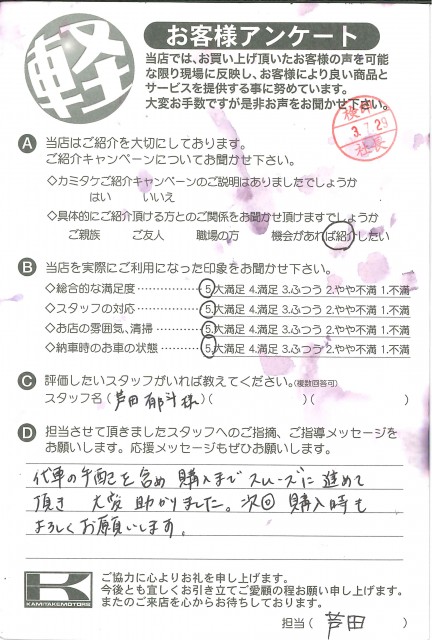 軽
お客様アンケート
当店では、お買い上げ頂いたお客様の声を可能
な限り現場に反映し、お客様により良い商品と
サービスを提供する事に努めています。
大変お手数ですが是非お声をお聞かせ下さい。
3.7.29
社長
A 当店はご紹介を大切にしております。
ご紹介キャンペーンについてお聞かせ下さい。
◇カミタケご紹介キャンペーンのご説明はありましたでしょうか
はい いいえ
◇具体的にご紹介頂ける方とのご関係をお聞かせ頂けますでしょうか
ご親族 ご友人 職場の方 機会があれば紹介したい
B 当店を実際にご利用になった印象をお聞かせ下さい。
◇総合的な満足度 ・・・・・・・・・・ 5.大満足 4.満足 3.ふつう 2.やや不満 1.不満
◇スタッフの対応 ・・・・・・・・・・ 5.大満足 4.満足 3.ふつう 2.やや不満 1.不満
◇お店の雰囲気、清掃 ・・・・・・ 5.大満足 4.満足 3.ふつう 2.やや不満 1.不満
◇納車時のお車の状態 ・・・・・・ 5.大満足 4.満足 3.ふつう 2.やや不満 1.不満
C 評価したいスタッフがいれば教えてください。(複数回答可)
スタッフ名 ( 芦田 郁斗様 )( )( )
D 担当させて頂きましたスタッフへのご指摘、ご指導メッセージを
お願いします。応援メッセージもぜひお願いします。
代車の手配を含め 購入まで スムーズに 進めて
頂き 大変 助かりました。次回 購入時も
よろしく お願いします。
K
KAMITAKEMOTORS
ご協力に心よりお礼を申し上げます。
今後とも宜しくお引き立てご愛顧の程お願い申し上げます。
またのご来店を心からお待ちしております。
担当 ( 芦田 )